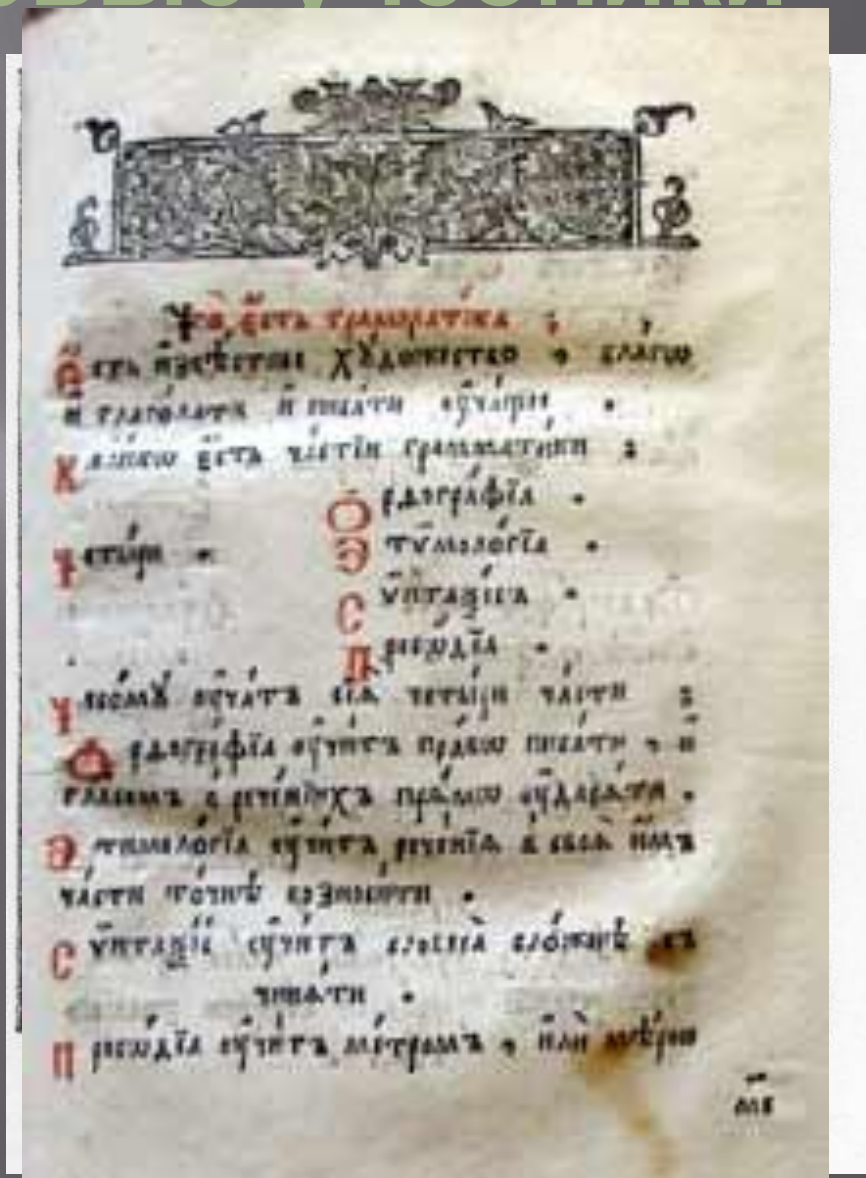 Что̀ є҆́сть грамма́тїка ;
Е҆́сть и҆звѣ́стное хꙋдо́жество , благѡ
и҆ глаго́лати и҆ писа́ти оу҆ча́щее .
Коли́кѡ є҆́сть ча́стїи грамма́тики ;
Ѻ҆рѳогра́фїа .
Четы́ри . Э҆тѷмоло́гїа .
Сѷ́нтаѯїсъ .
Просѡ́дїа .
Чесомꙋ̀ оу҆ча́тъ сїѧ̑ четы́ри ча́сти ;
Ѻ҆рѳогра́фїа оу҆чи́тъ пра́вѡ писа́ти , и҆
гла́сомъ в рече́нїихъ прѧ́мѡ оу҆дарѧ́ти .
Э҆тимоло́гїа оу҆чи́тъ рече́нїѧ в своѧ̑ и҆̀мъ
ча́сти то́чнѣ возноси́ти .
Сѷ́нтаѯїс оу҆чи́тъ словеса̀ сло́жнѣ съ
чинѧ́ти .
Просѡ́дїа оу҆чи́тъ ме́тромъ , и҆лѝ мѣ́рою